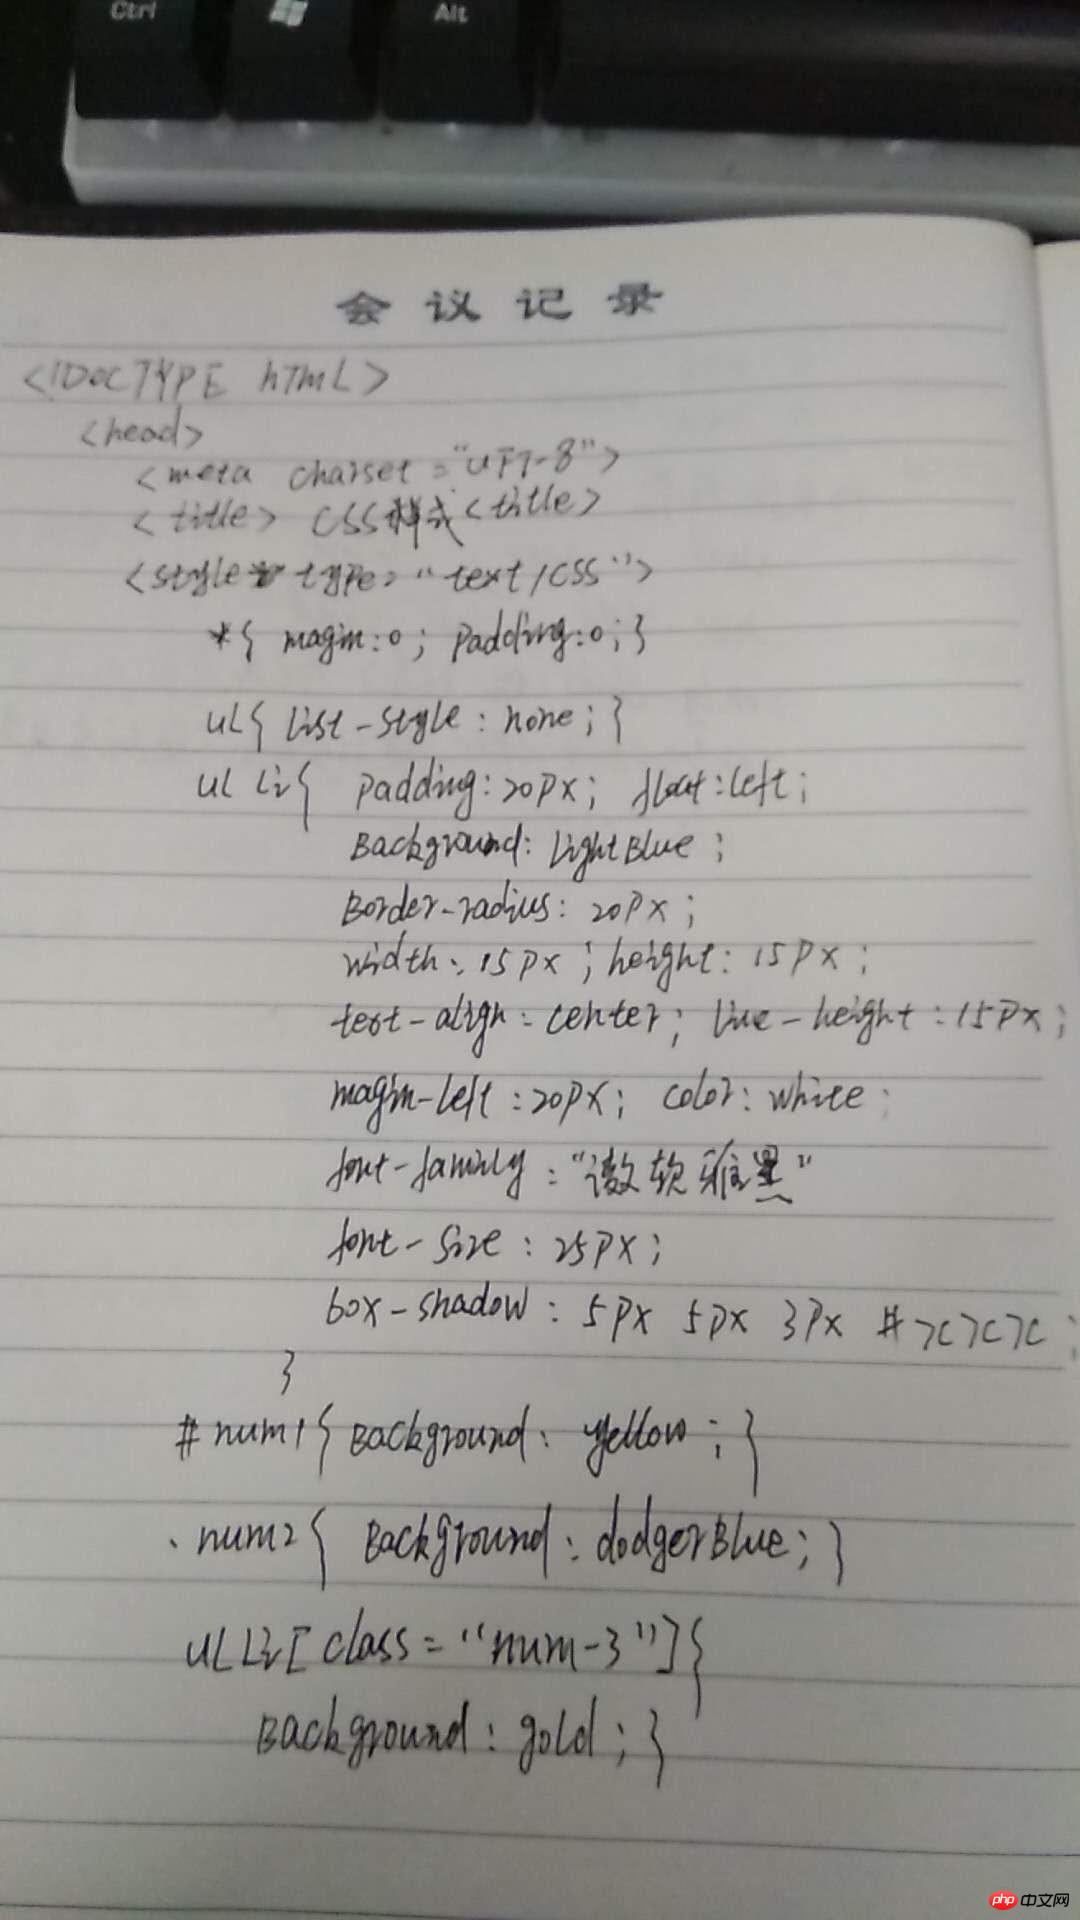 Ctrl Alt
会议记录
<!DOCTYPE hTmL>
<head>
<meta charset="UFT-8">
<title> CSS样式<title>
<style type="text/css">
*{ magin:0; padding:0;}
ul{ list-style: none; }
ul li{ padding:20px; float:left;
Background: LightBlue;
Border-radius: 20px;
width: 15px; height: 15px;
text-align: center; line-height: 15px;
magin-left: 20px; color: white;
font-family: "微软雅黑"
font-size: 25px;
box-shadow: 5px 5px 3px
}
#num1{ Background: yellow; }
.num2{ Background: dodgerBlue; }
ul li[class="num-3"]{
Background: gold; }
php 中文网